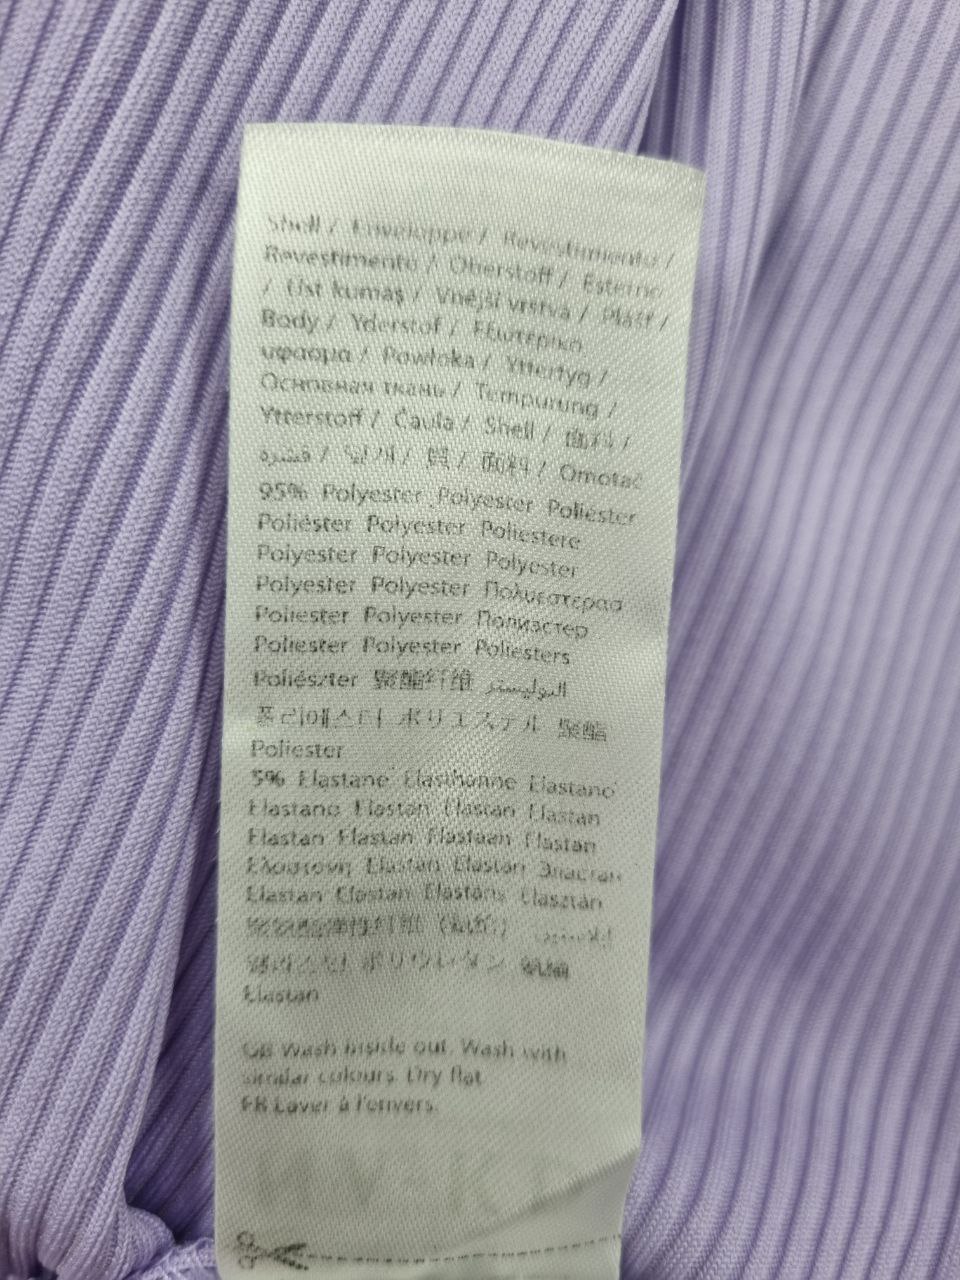 Shell / Enveloppe / Revestimento /
Revestimento / Oberstoff / Esterno
/ Üst kumaş / Vnější vrstva / Plášť /
Body / Yderstof / Εξωτερικο
υφασμα / Powłoka / Yttertyg /
Основная ткань / Tempurung /
Ytterstoff / Čaula / Shell / 面料 /
قشرة / 겉감 / 表 / 面料 / Omotač
95% Polyester Polyester Poliéster
Poliéster Polyester Poliestere
Polyester Polyester Polyester
Polyester Polyester Πολυεστερασ
Poliester Polyester Полиэстер
Poliester Polyester Poliesters
Poliészter 聚酯纤维 البوليستر
폴리에스터 ポリエステル 聚酯
Poliester
5% Elastane Elasthanne Elastano
Elastano Elastan Elastan Elastan
Elastan Elastan Elastaan Elastan
Ελαστανη Elastan Elastan Эластан
Elastan Elastan Elastāns Elasztán
ポリウレタン
Elastan
GB Wash inside out. Wash with
similar colours. Dry flat
FR Laver à l'envers.